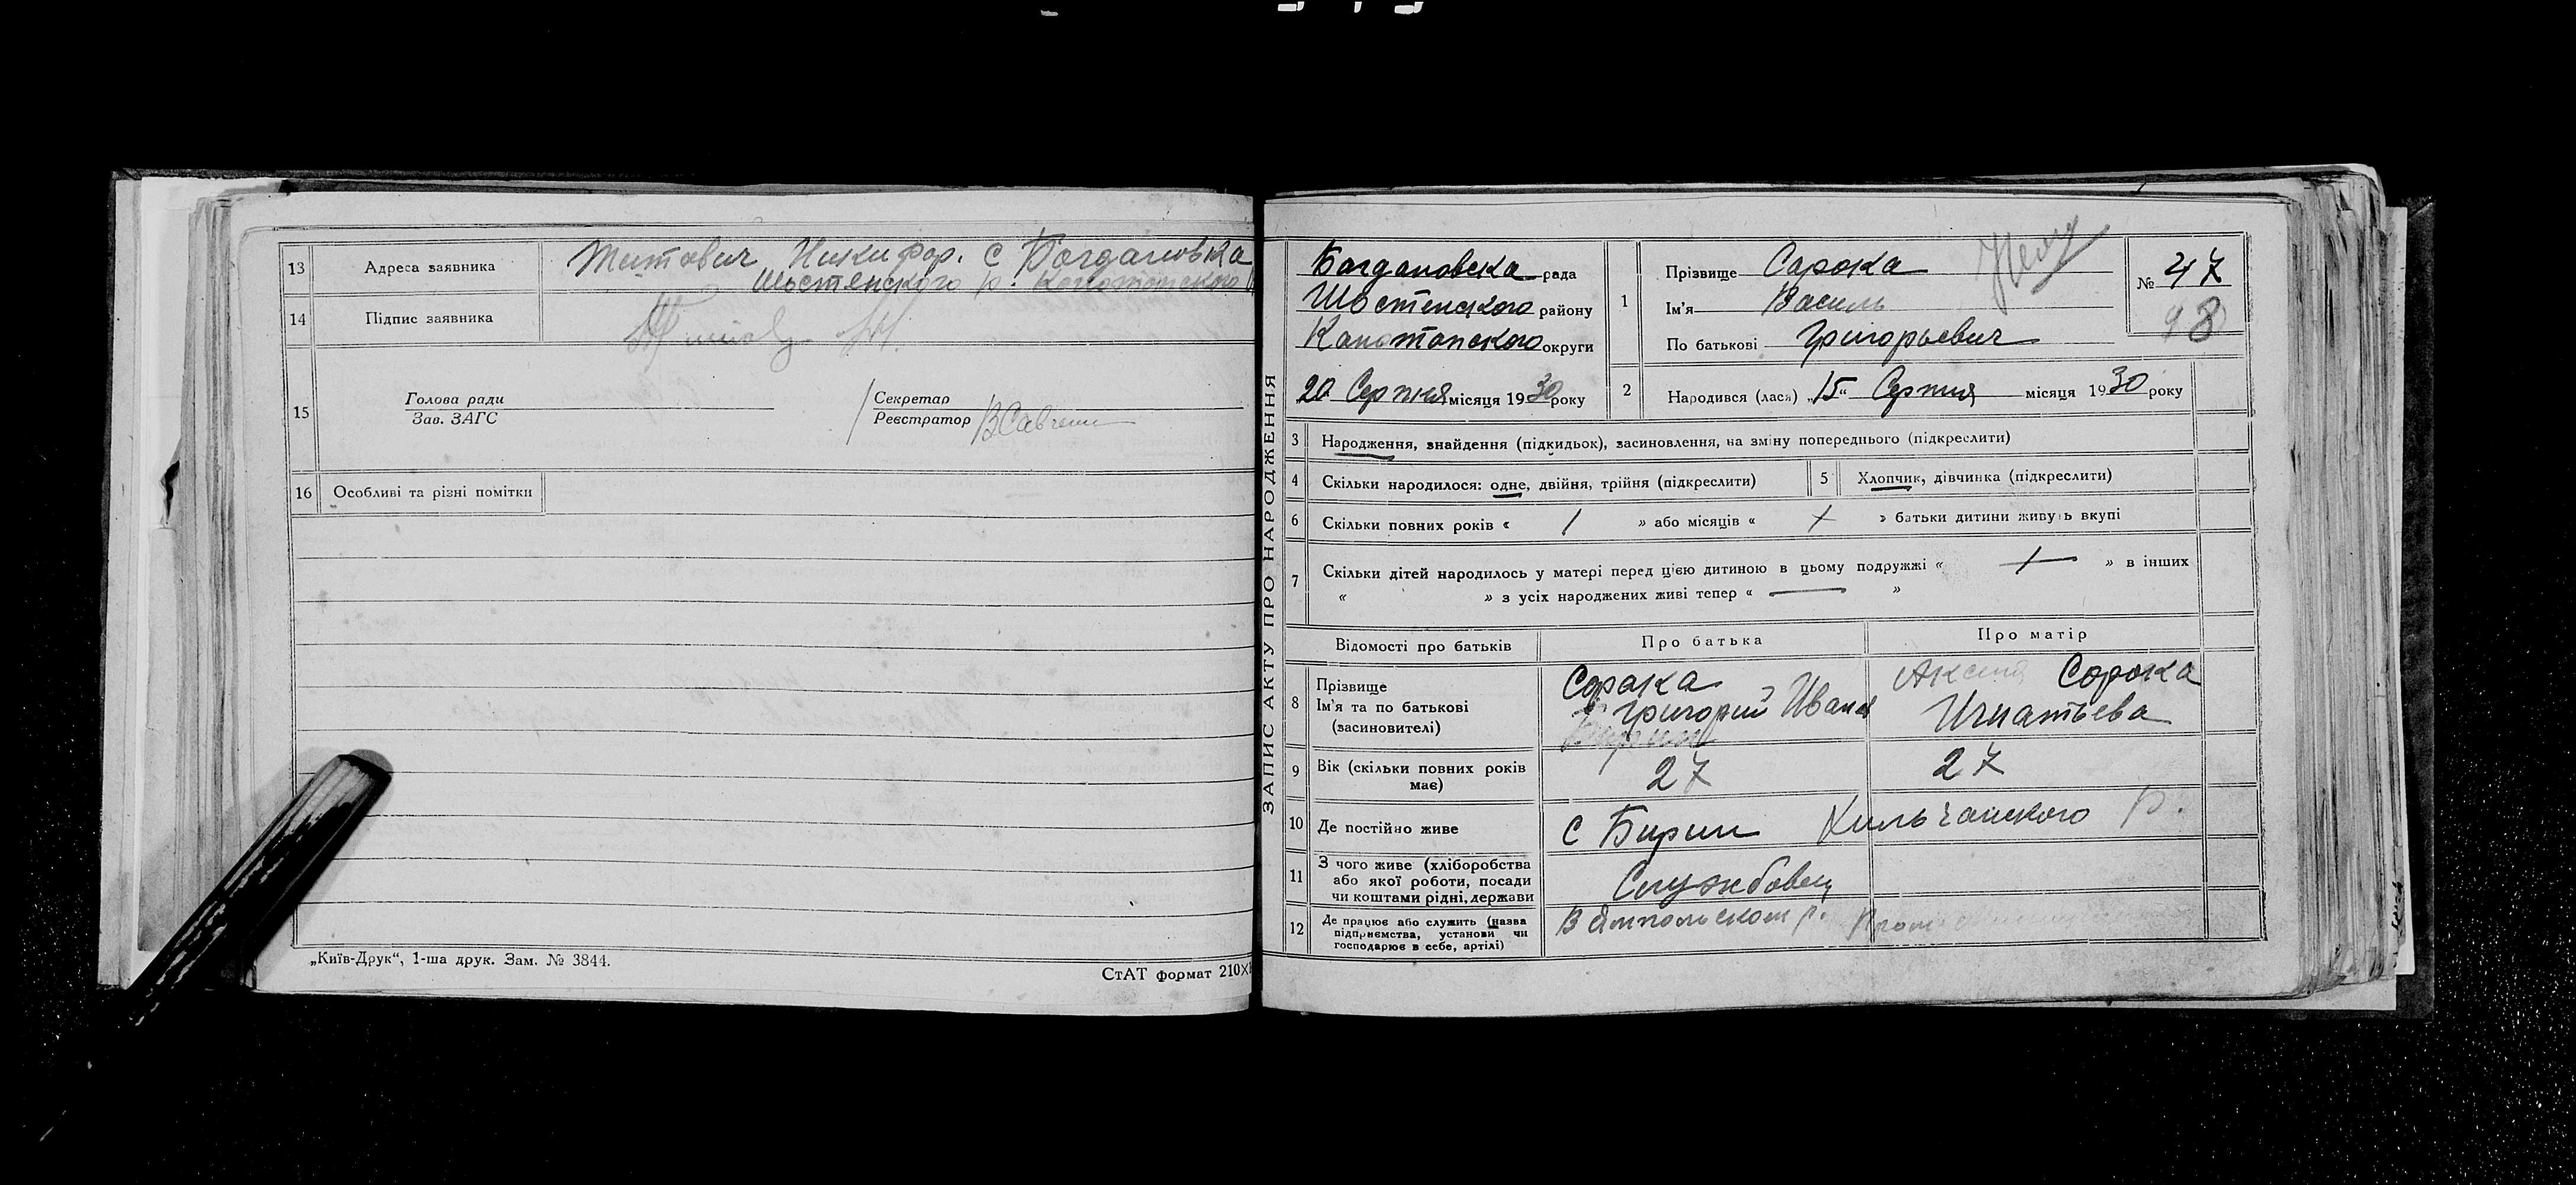 13 Адреса заявника Титович Никифор. с Богдановка
Шостенского р. Конотопского
14 Підпис заявника
15 Голова ради
Зав. ЗАГС
Секретар
Реєстратор ВСавченк
16 Особливі та різні помітки
„Київ-Друк“, 1-ша друк. Зам. № 3844.
СтАТ формат 210X
ЗАПИС АКТУ ПРО НАРОДЖЕННЯ
Богдановска рада
Шостенского району
Канотопского округи
20 Серпня місяця 1930 року
1 Прізвище Сарока
Ім'я Василь
По батькові Григорьевич
№ 47
98
2 Народився (лася) „15“ Серпня місяця 1930 року
3 Народження, знайдення (підкидьок), засиновлення, на зміну попереднього (підкреслити)
4 Скільки народилося: одне, двійня, трійня (підкреслити)
5 Хлопчик, дівчинка (підкреслити)
6 Скільки повних років « / » або місяців « » батьки дитини живуть вкупі
7 Скільки дітей народилось у матері перед цією дитиною в цьому подружжі « » в інших
« » з усіх народжених живі тепер « — »
Відомості про батьків Про батька Про матір
8 Прізвище
Ім'я та по батькові
(засиновителі)
Сорака
Григорий Иванов
Аксиня Сорока
Игнатьева
9 Вік (скільки повних років
має)
27 27
10 Де постійно живе с Бирин Хильчанского р.
11 З чого живе (хліборобства
або якої роботи, посади
чи коштами рідні, держави
Службовец
12 Де працює або служить (назва
підприємства, установи чи
господарює в себе, артілі)
В Ямпольском р.